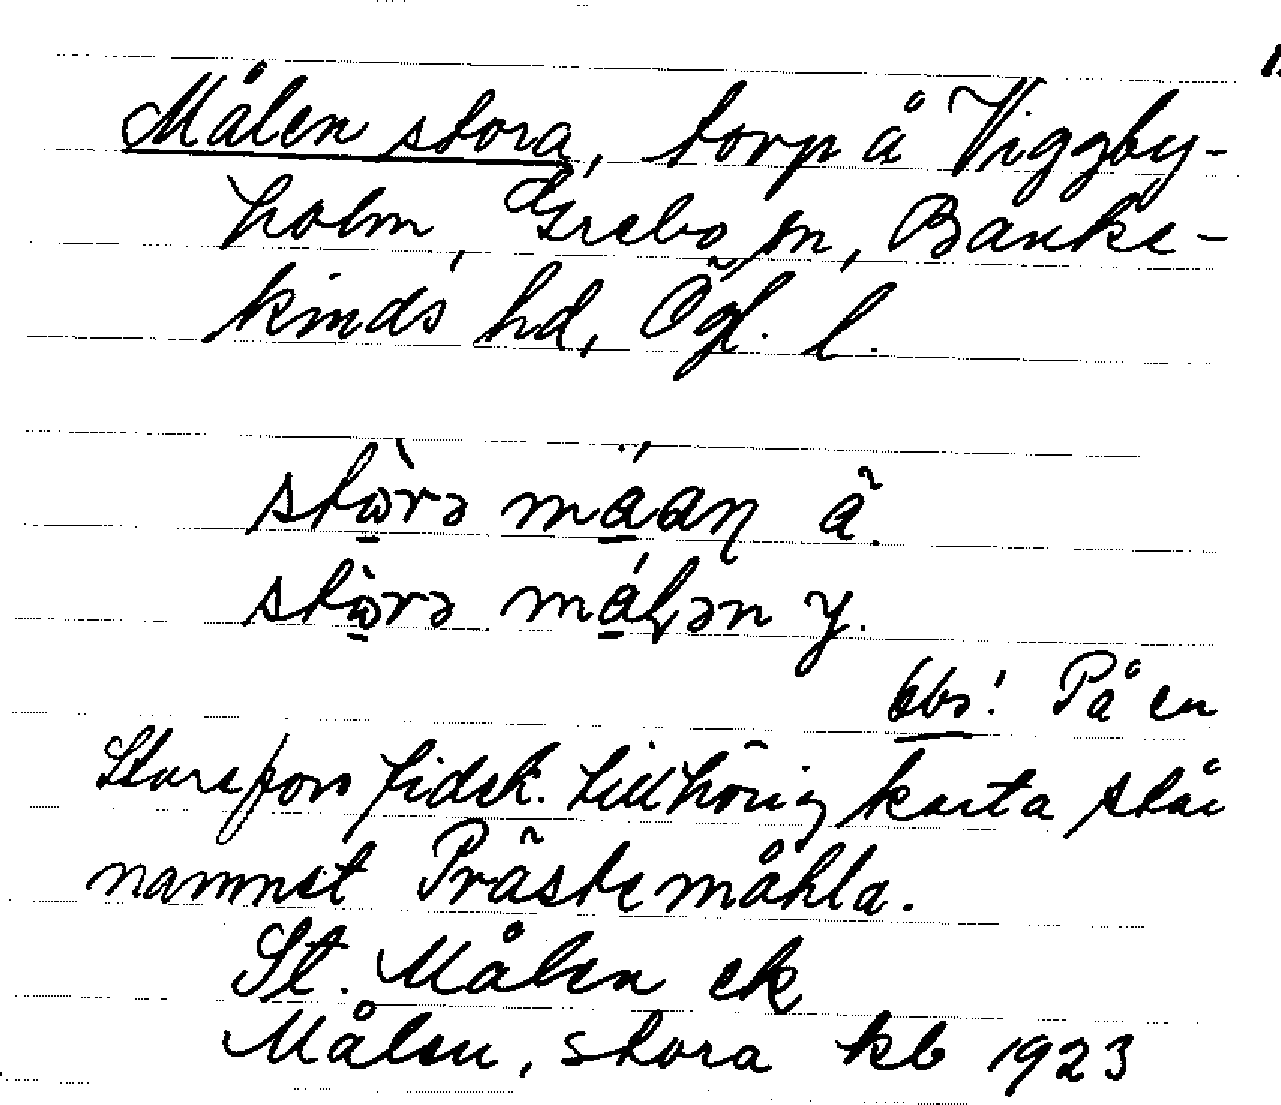 Målen stora, torp å Viggby-
holm, Grebo sn, Banke-
kinds hd, Ögl. l.
stɷ̀rə máaņ ä.
stɷ̀rə máłən y.
obs! På en
Storefors fidek. tillhörig karta står
namnet Prästemåhla.
St. Målen ek
Målen, stora kb 1923